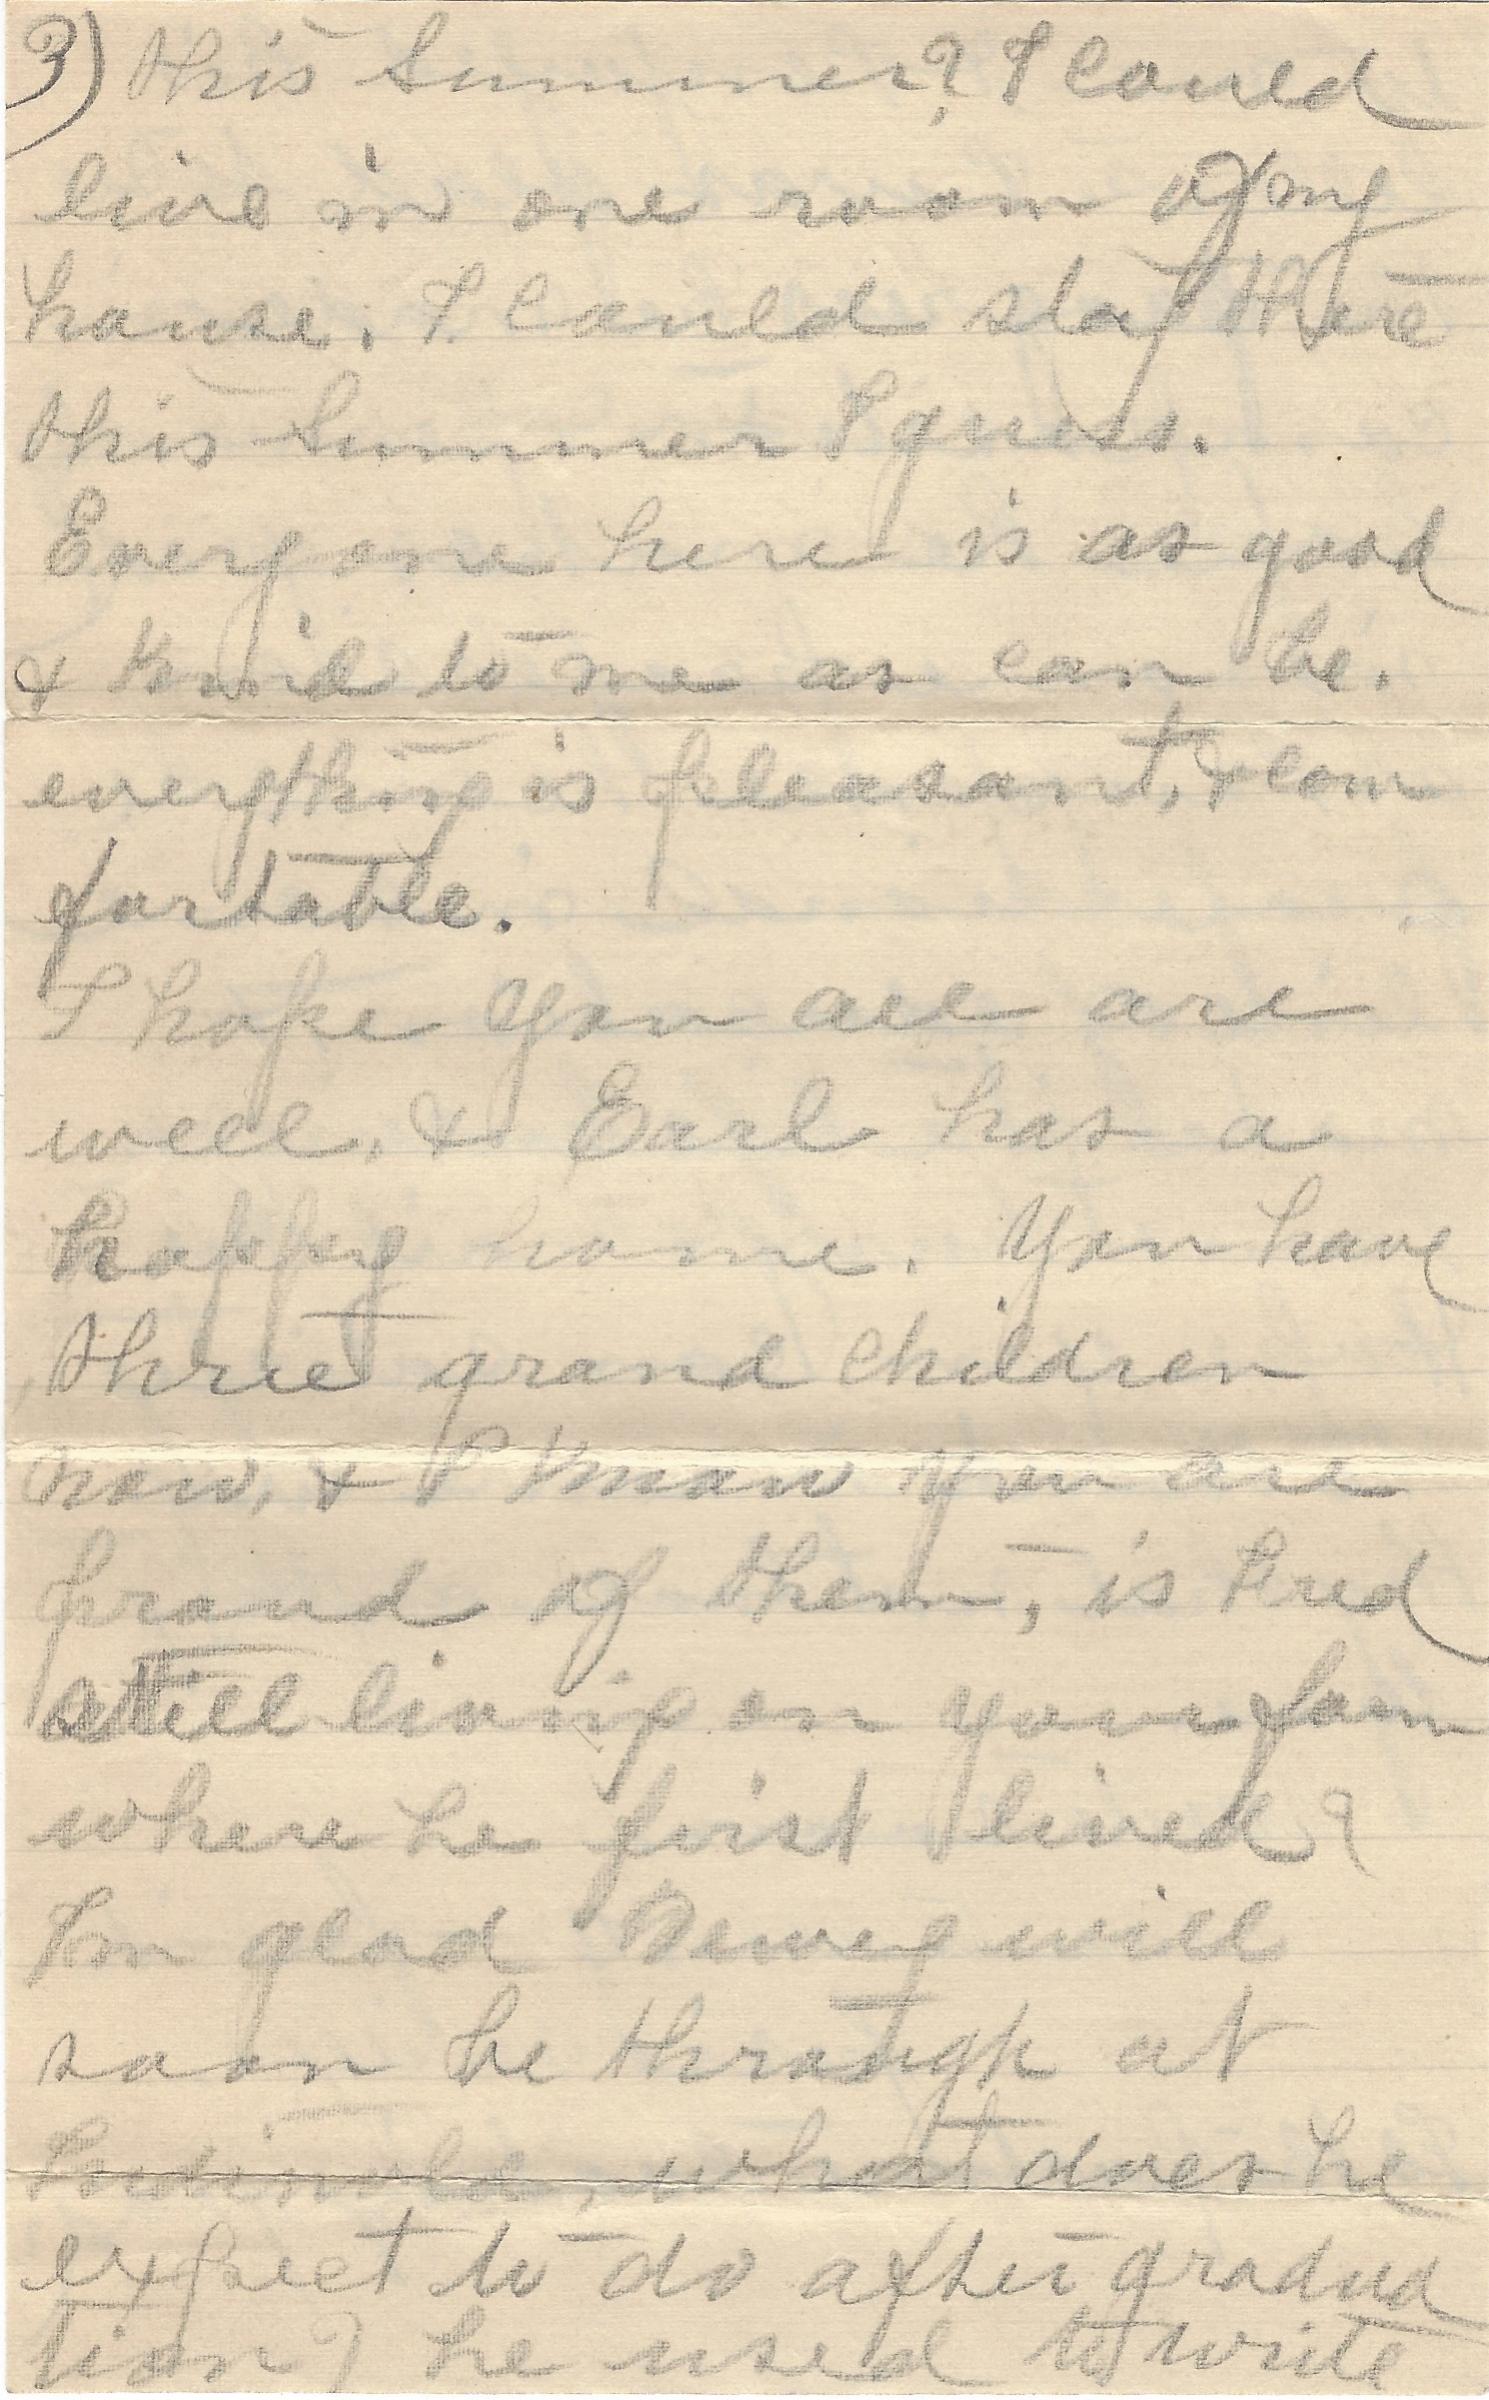 3) this Summer? I Could
live in one room of my
house. I Could stay there
this Summer I guess.
Every one here is as good
& Kind to me as can be.
everything is pleasant, & com
fortable.
I hope you all are
well, & Earl has a
happy home. You have
three grand children
now, & I Know you are
proud of them, is Fred
still living on your farm
where he first lived?
Im glad Dewey will
soon be through at
what does he
expect to do after gradua
tion? he used to write